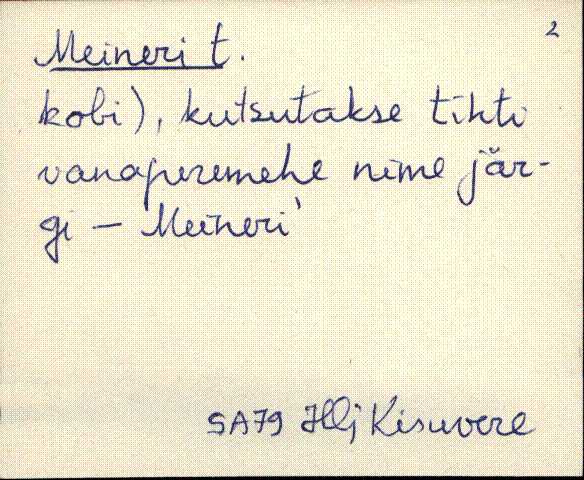 2
Meineri t.
kobi), kutsutakse tihti
vanaperemehe nime jär-
gi – Meineri'
SA79 Hlj Kisuvere